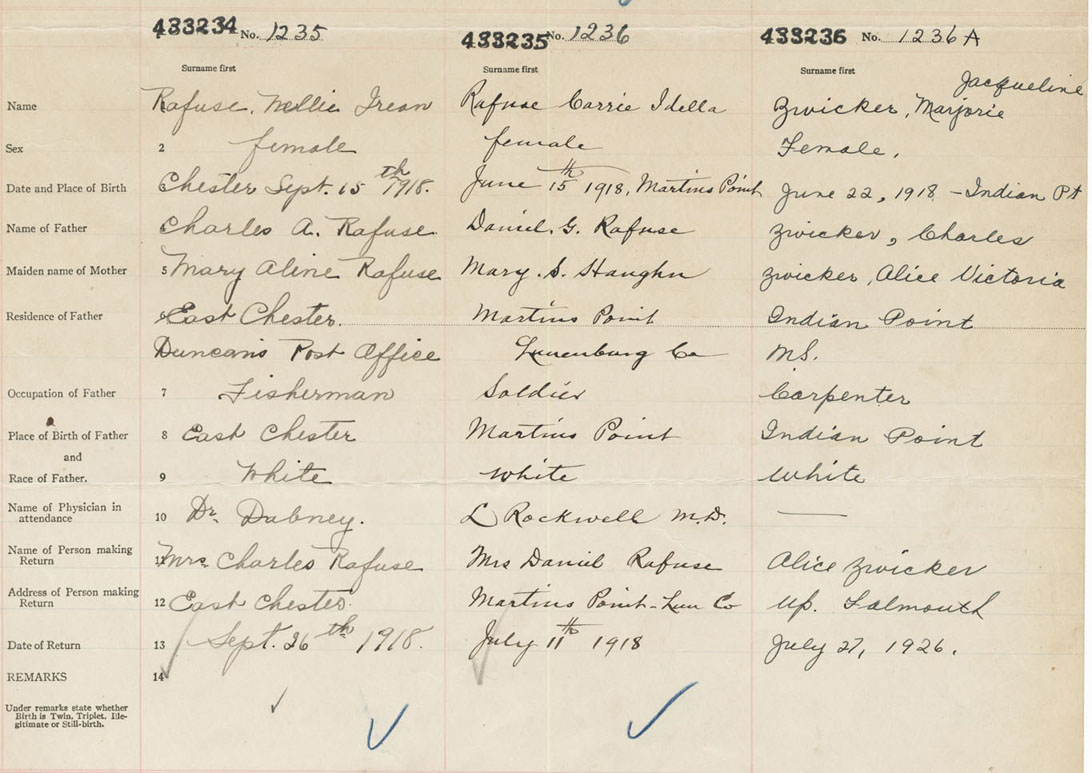 433234 No. 1235 433235 No. 1236 433236 No. 1236 A
Surname first Surname first Surname first
Jacqueline
Name Rafuse, Nellie Irean Rafuse Carrie Idella Zwicker, Marjorie
Sex 2 female female Female.
Date and Place of Birth Chester Sept. 15th 1918. June 15th 1918, Martins Point June 22, 1918 - Indian Pt
Name of Father Charles A. Rafuse Daniel. G. Rafuse Zwicker, Charles
Maiden name of Mother 5 Mary Aline Rafuse Mary. S. Haughn Zwicker, Alice Victoria
Residence of Father East Chester. Martins Point Indian Point
Duncan's Post Office Lunenburg Co
Occupation of Father 7 Fisherman Soldier Carpenter
Place of Birth of Father 8 East Chester Martins Point Indian Point
and
Race of Father. 9 White White White
Name of Physician in
attendance 10 Dr. Dabney. L Rockwell M.D. —
Name of Person making
Return 11 Mrs. Charles Rafuse Mrs Daniel Rafuse Alice Zwicker
Address of Person making
Return 12 East Chester. Martins Point - Lun Co Up. Falmouth
Date of Return 13 Sept. 26th 1918. July 11th 1918 July 27, 1926.
REMARKS 14
Under remarks state whether
Birth is Twin, Triplet, Ille-
gitimate or Still-birth.